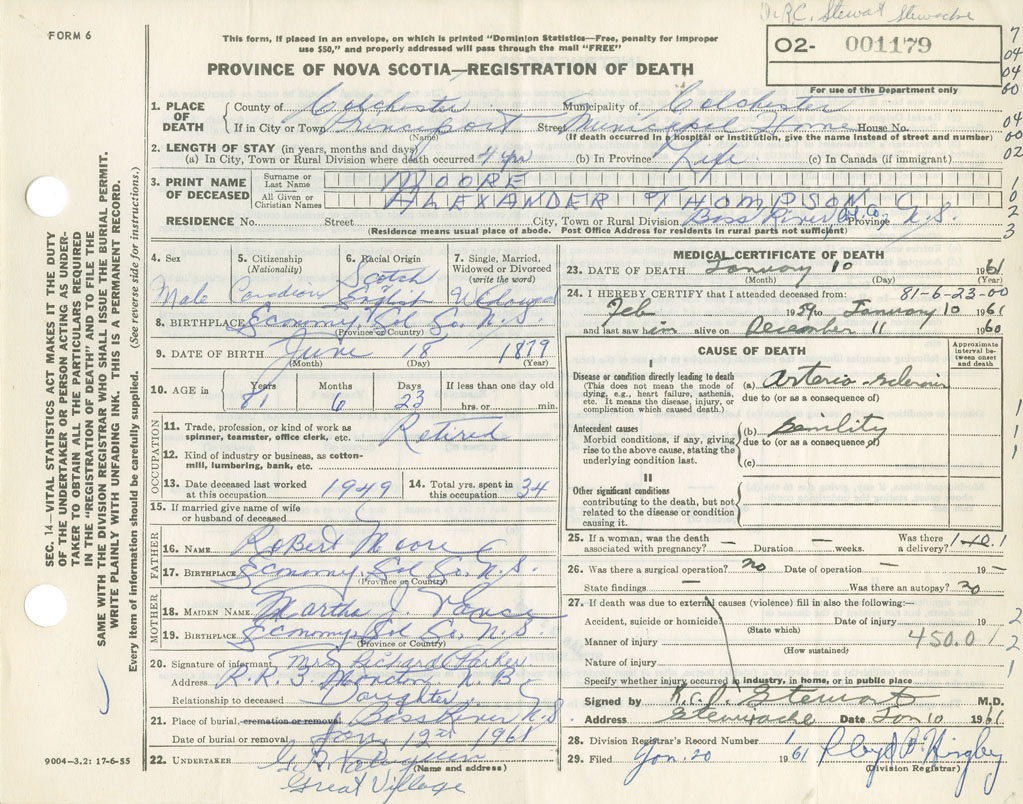 Dr R.C. Stewart Stewiacke
FORM 6
This form, if placed in an envelope, on which is printed "Dominion Statistics—Free, penalty for improper
use $50," and properly addressed will pass through the mail "FREE"
PROVINCE OF NOVA SCOTIA—REGISTRATION OF DEATH
02- 001179
For use of the Department only
7
04
04
60
04
00
02
1
0
2
3
SEC. 14—VITAL STATISTICS ACT MAKES IT THE DUTY
OF THE UNDERTAKER OR PERSON ACTING AS UNDER-
TAKER TO OBTAIN ALL THE PARTICULARS REQUIRED
IN THE "REGISTRATION OF DEATH" AND TO FILE THE
SAME WITH THE DIVISION REGISTRAR WHO SHALL ISSUE THE BURIAL PERMIT.
WRITE PLAINLY WITH UNFADING INK. THIS IS A PERMANENT RECORD.
Every item of information should be carefully supplied. (See reverse side for instructions.)
1. PLACE OF DEATH
County of Colchester Municipality of Colchester
If in City or Town Princeport Street Municipal Home House No.
(Name) (If death occurred in a hospital or institution, give the name instead of street and number)
2. LENGTH OF STAY (in years, months and days)
(a) In City, Town or Rural Division where death occurred 4 yrs (b) In Province Life (c) In Canada (if immigrant)
3. PRINT NAME OF DECEASED
Surname or Last Name MOORE
All Given or Christian Names ALEXANDER THOMPSON C
RESIDENCE No. Street City, Town or Rural Division Bass River Col. Co. Province N.S.
(Residence means usual place of abode. Post Office Address for residents in rural parts not sufficient)
4. Sex Male
5. Citizenship (Nationality) Canadian
6. Racial Origin Scotch English
7. Single, Married, Widowed or Divorced (write the word) Widowed
8. BIRTHPLACE Economy Col Co. N.S.
(Province or Country)
9. DATE OF BIRTH June 18 1879
(Month) (Day) (Year)
10. AGE in Years 81 Months 6 Days 23 If less than one day old
hrs. or min.
OCCUPATION
11. Trade, profession, or kind of work as
spinner, teamster, office clerk, etc. Retired
12. Kind of industry or business, as cotton-
mill, lumbering, bank, etc.
13. Date deceased last worked at this occupation 1949 14. Total yrs. spent in this occupation 34
15. If married give name of wife
or husband of deceased
FATHER
16. NAME Robert Moore
17. BIRTHPLACE Economy Col Co. N.S.
(Province or Country)
MOTHER
18. MAIDEN NAME Martha J. Vance
19. BIRTHPLACE Economy Col Co. N.S.
(Province or Country)
20. Signature of informant Mrs Richard Parker
Address R.R. 3. Moncton N.B.
Relationship to deceased Daughter
21. Place of burial, cremation or removal Bass River N.S
Date of burial or removal Jan 12th 1961
22. UNDERTAKER
(Name and address)
Great Village
9004—3.2: 17-6-55
MEDICAL CERTIFICATE OF DEATH
23. DATE OF DEATH January 10 1961
(Month) (Day) (Year)
24. I HEREBY CERTIFY that I attended deceased from: 81-6-23-00
Feb 1959 to January 10 1961
and last saw him alive on December 11 1960
CAUSE OF DEATH
Approximate interval between onset and death
I
Disease or condition directly leading to death
(This does not mean the mode of
dying, e.g., heart failure, asthenia,
etc. It means the disease, injury, or
complication which caused death.)
(a) Arterio-sclerosis
due to (or as a consequence of)
Antecedent causes
Morbid conditions, if any, giving
rise to the above cause, stating the
underlying condition last.
(b) Senility
due to (or as a consequence of)
(c)
1
1
1
II
Other significant conditions
contributing to the death, but not
related to the disease or condition
causing it.
25. If a woman, was the death associated with pregnancy? — Duration — weeks. Was there a delivery?
26. Was there a surgical operation? no Date of operation — 19 —
State findings — Was there an autopsy? no
27. If death was due to external causes (violence) fill in also the following:—
Accident, suicide or homicide Date of injury 19 2
(State which)
Manner of injury 450.0 1 2
(How sustained)
Nature of injury 1
Specify whether injury occurred in industry, in home, or in public place
Signed by R. C. Stewart M.D.
Address Stewiacke Date Jan 10 1961
28. Division Registrar's Record Number 1
29. Filed Jan. 20 1961 Lloyd
(Division Registrar)